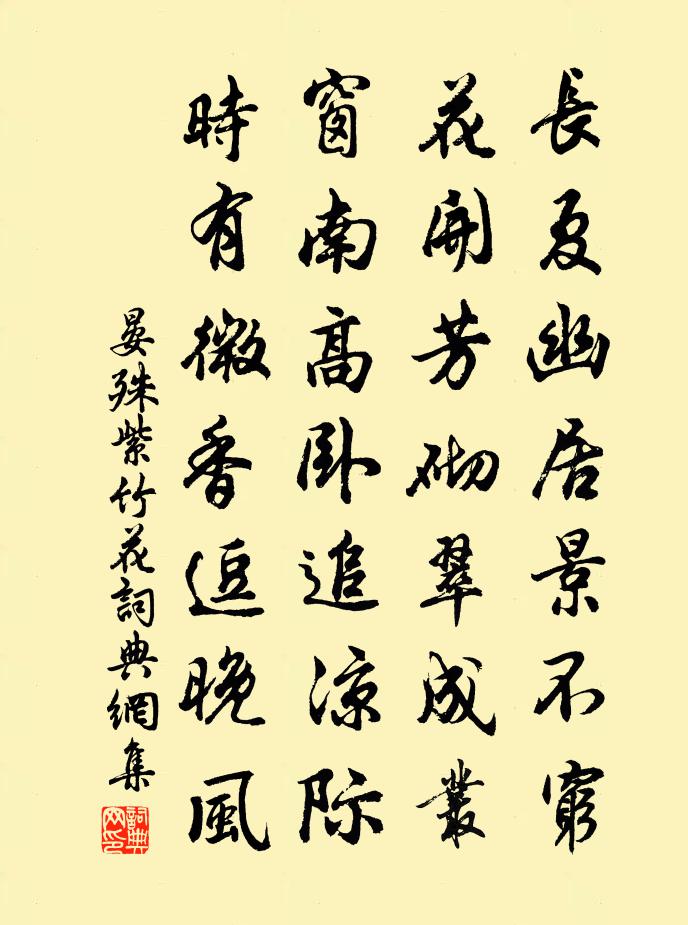 長夏幽居景不窮
花開芳砌翠成叢
窗南高卧追凉际
時有微香逗晚風
晏殊紫竹花詞典網集
詞典网印